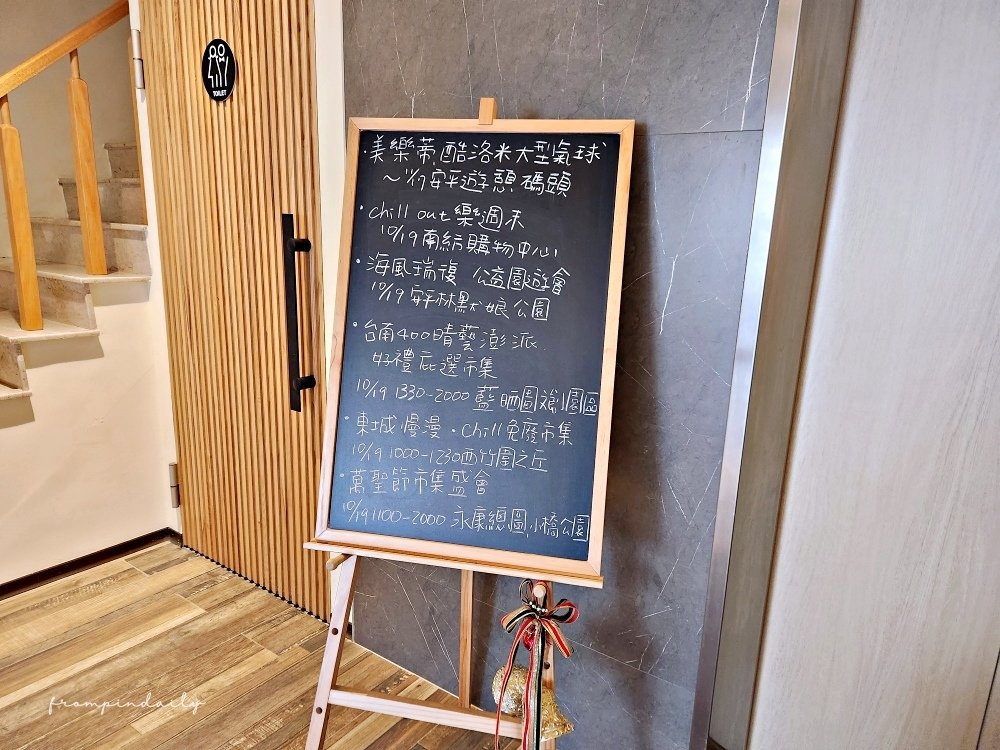 TOILET
·美樂蒂、酷洛米大型氣球
~11/17安平遊憩碼頭
·chill out樂週末
10/19南紡購物中心
·海風瑞復 公益園遊會
10/19安平林默娘公園
·台南400晴藝澎派
好禮庇選市集
10/19 1330-2000藍晒圖文創園區
·東城慢漫·Chill免廢市集
10/19 1000-1230西竹圍之丘
·萬聖節市集盛會
10/19 1100-2000永康總圖,小橋公園
frompindaily